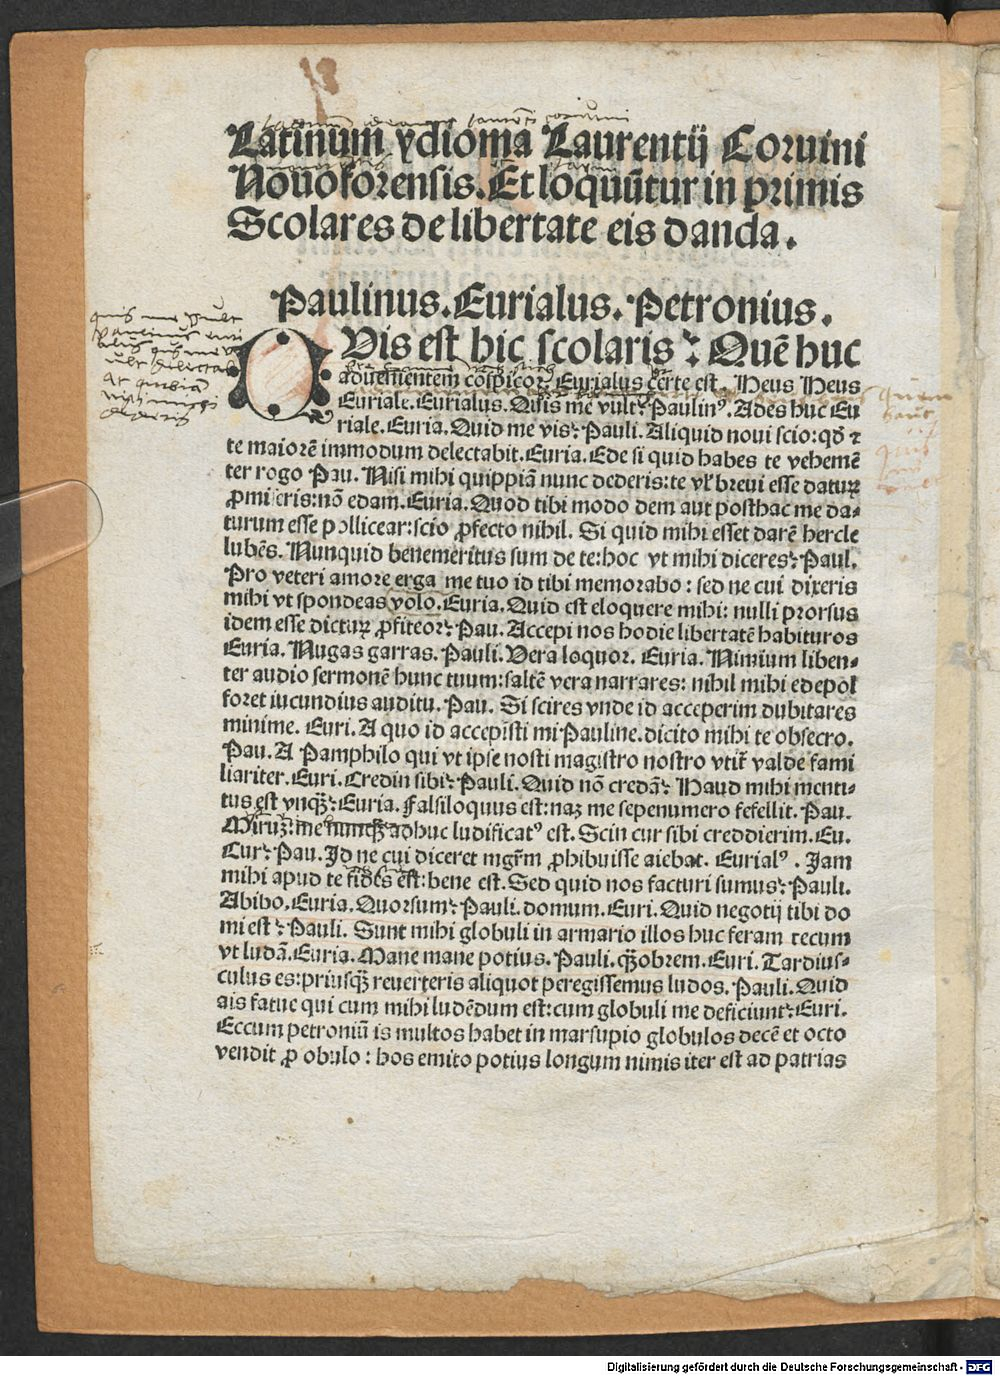 Latinum ydioma Laurentij Coruini
Nouoforensis. Et loquūtur in primis
Scolares de libertate eis danda.
Paulinus. Eurialus. Petronius.
QVis est hic scolaris: Quē huc
aduenientem cōspicor? Eurialus certe est. Heus Heus
Euriale. Eurialus. Quis me vult? Paulinꝰ. Ades huc Eu
riale. Euria. Quid me vis? Pauli. Aliquid noui scio: qđ ⁊
te maiorē immodum delectabit. Euria. Ede si quid habes te vehemē
ter rogo Pau. Nisi mihi quippiā nunc dederis: te vl' breui esse daturꝝ
ꝓmiseris: nō edam. Euria. Quod tibi modo dem aut posthac me da-
turum esse pollicear: scio ꝓfecto nihil. Si quid mihi esset darē hercle
lubēs. Nunquid benemeritus sum de te: hoc vt mihi diceres? Paul.
Pro veteri amore erga me tuo id tibi memorabo: sed ne cui dixeris
mihi vt spondeas volo. Euria. Quid est eloquere mihi: nulli prorsus
idem esse dicturꝝ ꝓfiteor? Pau. Accepi nos hodie libertatē habituros
Euria. Nugas garras. Pauli. Vera loquor. Euria. Nimium liben-
ter audio sermonē hunc tuum: saltē vera narrares: nihil mihi edepol
foret iucundius auditu. Pau. Si scires vnde id acceperim dubitares
minime. Euri. A quo id accepisti mi Pauline. dicito mihi te obsecro.
Pau. A Pamphilo qui vt ipse nosti magistro nostro vtit᷑ valde fami
liariter. Euri. Credin sibi? Pauli. Quid nō credā? Haud mihi menti-
tus est vnqꝫ? Euria. Falsiloquus est: naꝫ me sepenumero fefellit. Pau.
Miruꝫ: me nunqꝫ adhuc ludificatꝰ est. Scin cur sibi creddierim. Eu.
Cur? Pau. Id ne cui diceret mgr̄m ꝓhibuisse aiebat. Eurialꝰ. Iam
mihi apud te fides est: bene est. Sed quid nos facturi sumus? Pauli.
Abibo. Euria. Quorsum? Pauli. domum. Euri. Quid negotij tibi do
mi est? Pauli. Sunt mihi globuli in armario illos huc feram tecum
vt ludā. Euria. Mane mane potius. Pauli. qꝫobrem. Euri. Tardius-
culus es: priusqꝫ reuerteris aliquot peregissemus ludos. Pauli. Quid
ais fatue qui cum mihi ludēdum est: cum globuli me deficiunt? Euri.
Eccum petroniū is multos habet in marsupio globulos decē et octo
vendit ꝓ obulo: hos emito potius longum nimis iter est ad patrias
Digitalisierung gefördert durch die Deutsche Forschungsgemeinschaft - DFG